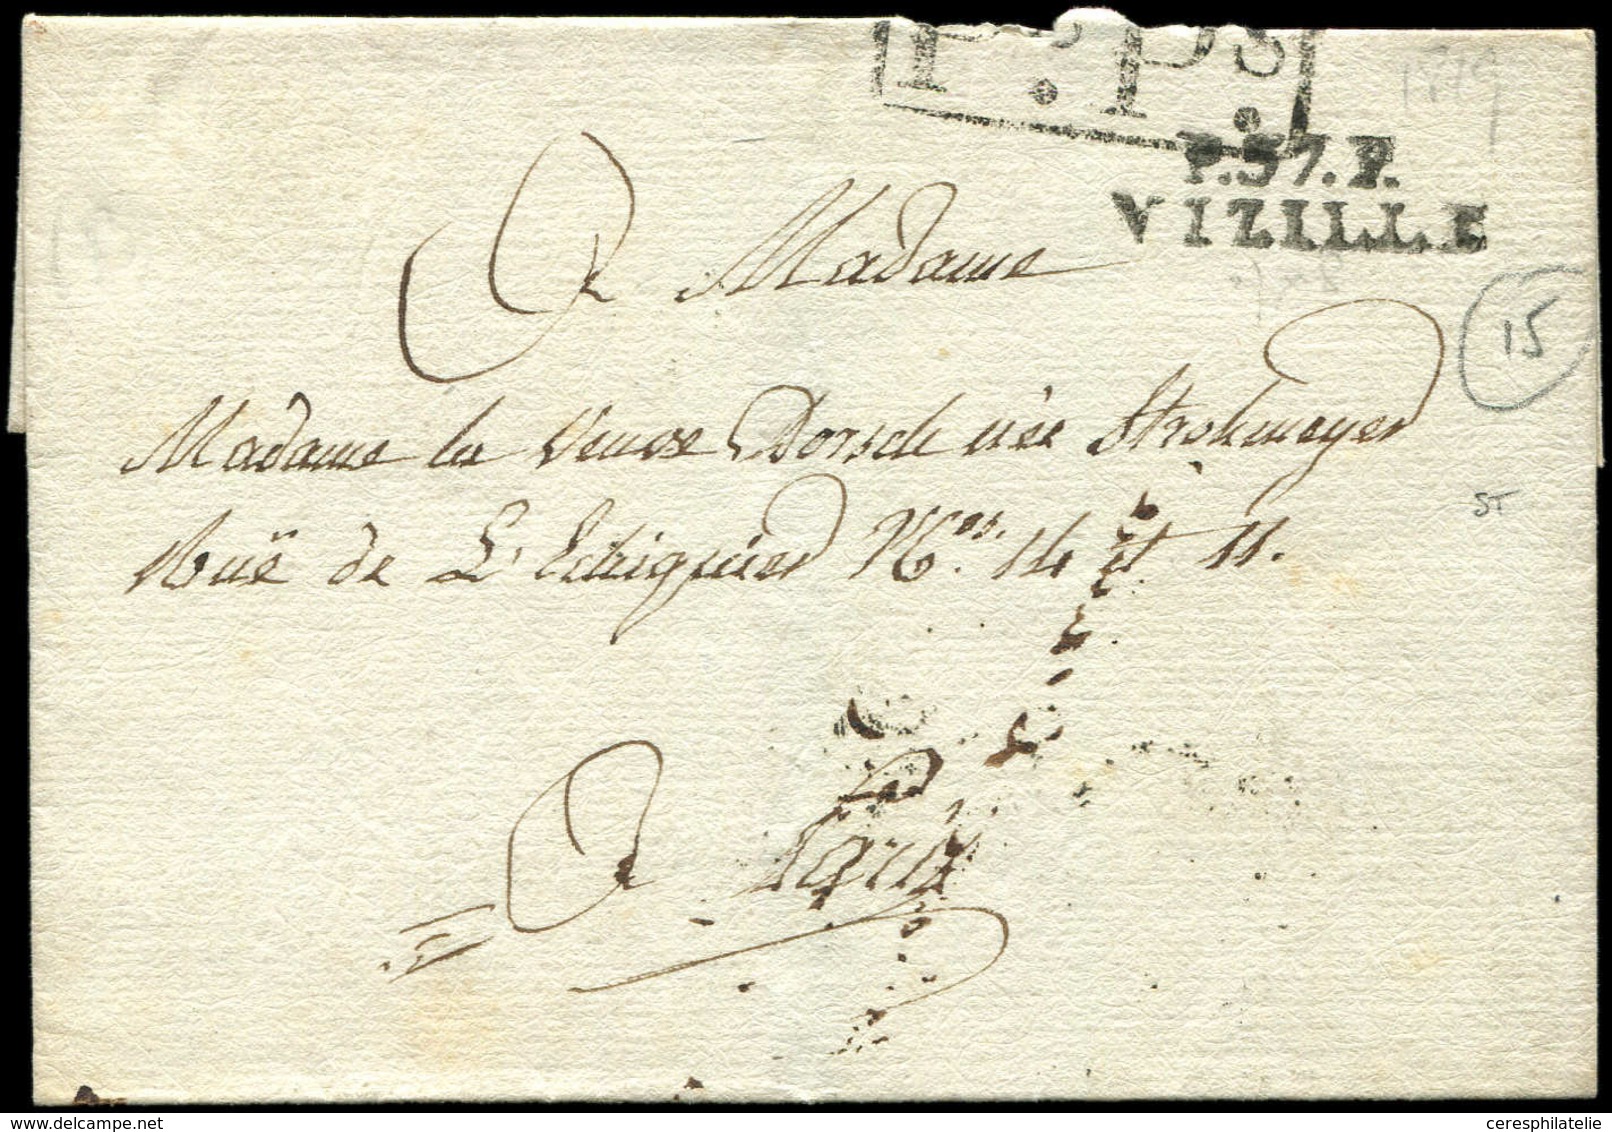 P.Ps.
1819
P.37.P.
VIZILLE
A Madame
15
Madame la Veuve Dorsch née Strohmeyer
ST
Ruë de L'Echiquier Nos. 14 et 11.
A Paris
delcampe.net
ceresphilatelie